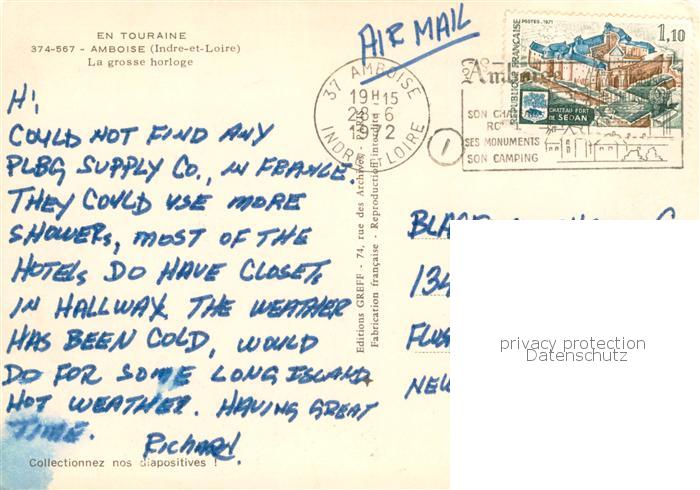 EN TOURAINE
374-567 - AMBOISE (Indre-et-Loire)
La grosse horloge
AIR MAIL
37 AMBOISE
19H15
28-6
1972
INDRE-ET-LOIRE
Amboise
SON CHA
RO
SES MONUMENTS
SON CAMPING
POSTES 1971
1,10
REPUBLIQUE FRANÇAISE
CHATEAU FORT
DE SEDAN
1
HI,
COULD NOT FIND ANY
PLBG SUPPLY CO., IN FRANCE.
THEY COULD USE MORE
SHOWERS, MOST OF THE
HOTELS DO HAVE CLOSETS
IN HALLWAY. THE WEATHER
HAS BEEN COLD, WOULD
DO FOR SOME LONG ISLAND
HOT WEATHER. HAVING GREAT
TIME.
Richard.
Collectionnez nos diapositives !
Editions GREFF - 74, rue des Archives -
Fabrication française - Reproduction interdite
134
FLUS
NEW
privacy protection
Datenschutz